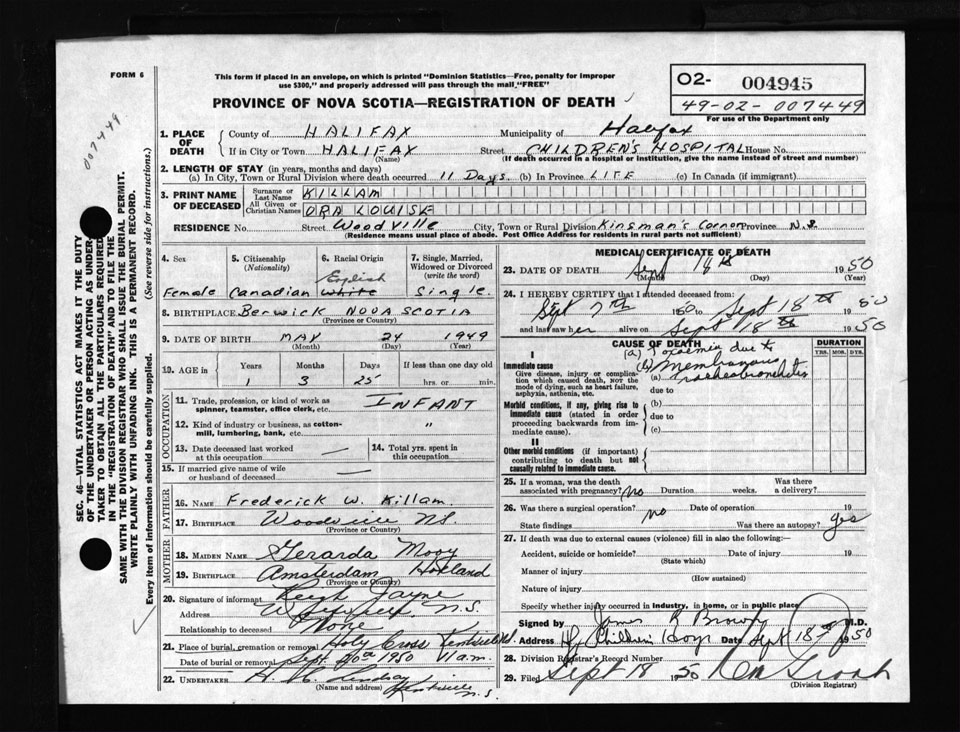 FORM 6
This form if placed in an envelope, on which is printed "Dominion Statistics—Free, penalty for improper
use $300," and properly addressed will pass through the mail "FREE"
O2- 004945
49-02-007449
For use of the Department only
PROVINCE OF NOVA SCOTIA—REGISTRATION OF DEATH
007449
1. PLACE OF DEATH County of HALIFAX Municipality of Halifax
If in City or Town HALIFAX Street CHILDREN'S HOSPITAL House No.
(Name) (If death occurred in a hospital or institution, give the name instead of street and number)
2. LENGTH OF STAY (in years, months and days)
(a) In City, Town or Rural Division where death occurred 11 Days (b) In Province LIFE (c) In Canada (if immigrant)
3. PRINT NAME OF DECEASED Surname or Last Name KILLAM
All Given or Christian Names ORA LOUISE
RESIDENCE No. Street Woodville City, Town or Rural Division Kinsman's Corner Province N.S.
(Residence means usual place of abode. Post Office Address for residents in rural parts not sufficient)
4. Sex 5. Citizenship (Nationality) 6. Racial Origin 7. Single, Married, Widowed or Divorced (write the word)
English
Female Canadian White Single.
8. BIRTHPLACE Berwick NOVA SCOTIA
(Province or Country)
9. DATE OF BIRTH MAY 24 1949
(Month) (Day) (Year)
10. AGE in Years Months Days If less than one day old
1 3 25 hrs. or min.
OCCUPATION
11. Trade, profession, or kind of work as spinner, teamster, office clerk, etc. INFANT
12. Kind of industry or business, as cotton-mill, lumbering, bank, etc. "
13. Date deceased last worked at this occupation 14. Total yrs. spent in this occupation
15. If married give name of wife or husband of deceased
FATHER
16. NAME Frederick W. Killam
17. BIRTHPLACE Woodville N.S.
(Province or Country)
MOTHER
18. MAIDEN NAME Gerarda Mooy
19. BIRTHPLACE Amsterdam Holland
(Province or Country)
20. Signature of informant Jayne
Address N.S.
Relationship to deceased None
21. Place of burial, cremation or removal Holy Cross Kentville
Date of burial or removal Sept. 20th 1950 11 a.m.
22. UNDERTAKER Lindsay
(Name and address) Kentville N.S.
MEDICAL CERTIFICATE OF DEATH
23. DATE OF DEATH Sept 18th 1950
(Month) (Day)
24. I HEREBY CERTIFY that I attended deceased from
Sept 7th 1950 to Sept 18th 50
and last saw her alive on Sept 18th 1950
CAUSE OF DEATH DURATION
YRS. MOS. DYS.
I
Immediate cause
Give disease, injury or complication which caused death, NOT the mode of dying, such as heart failure, asphyxia, asthenia, etc.
(a) Toxaemia due to
(b) Membranous
(a) tracheobronchitis
due to
Morbid conditions, if any, giving rise to immediate cause (stated in order proceeding backwards from immediate cause).
(b)
due to
(c)
II
Other morbid conditions (if important) contributing to death but not causally related to immediate cause.
25. If a woman, was the death associated with pregnancy? no Duration weeks. Was there a delivery?
26. Was there a surgical operation? no Date of operation 19
State findings Was there an autopsy? yes
27. If death was due to external causes (violence) fill in also the following:
Accident, suicide or homicide? Date of injury 19
(State which)
Manner of injury
(How sustained)
Nature of injury
Specify whether injury occurred in industry, in home, or in public place
Signed by James R Brown M.D.
Address Children's Hosp Date Sept 18th 1950
28. Division Registrar's Record Number
29. Filed Sept 18 1950
(Division Registrar)
SEC. 46—VITAL STATISTICS ACT MAKES IT THE DUTY
OF THE UNDERTAKER OR PERSON ACTING AS UNDER-
TAKER TO OBTAIN ALL THE PARTICULARS REQUIRED
IN THE "REGISTRATION OF DEATH" AND TO FILE THE
SAME WITH THE DIVISION REGISTRAR WHO SHALL ISSUE THE BURIAL PERMIT.
WRITE PLAINLY WITH UNFADING INK. THIS IS A PERMANENT RECORD.
Every item of information should be carefully supplied. (See reverse side for instructions.)